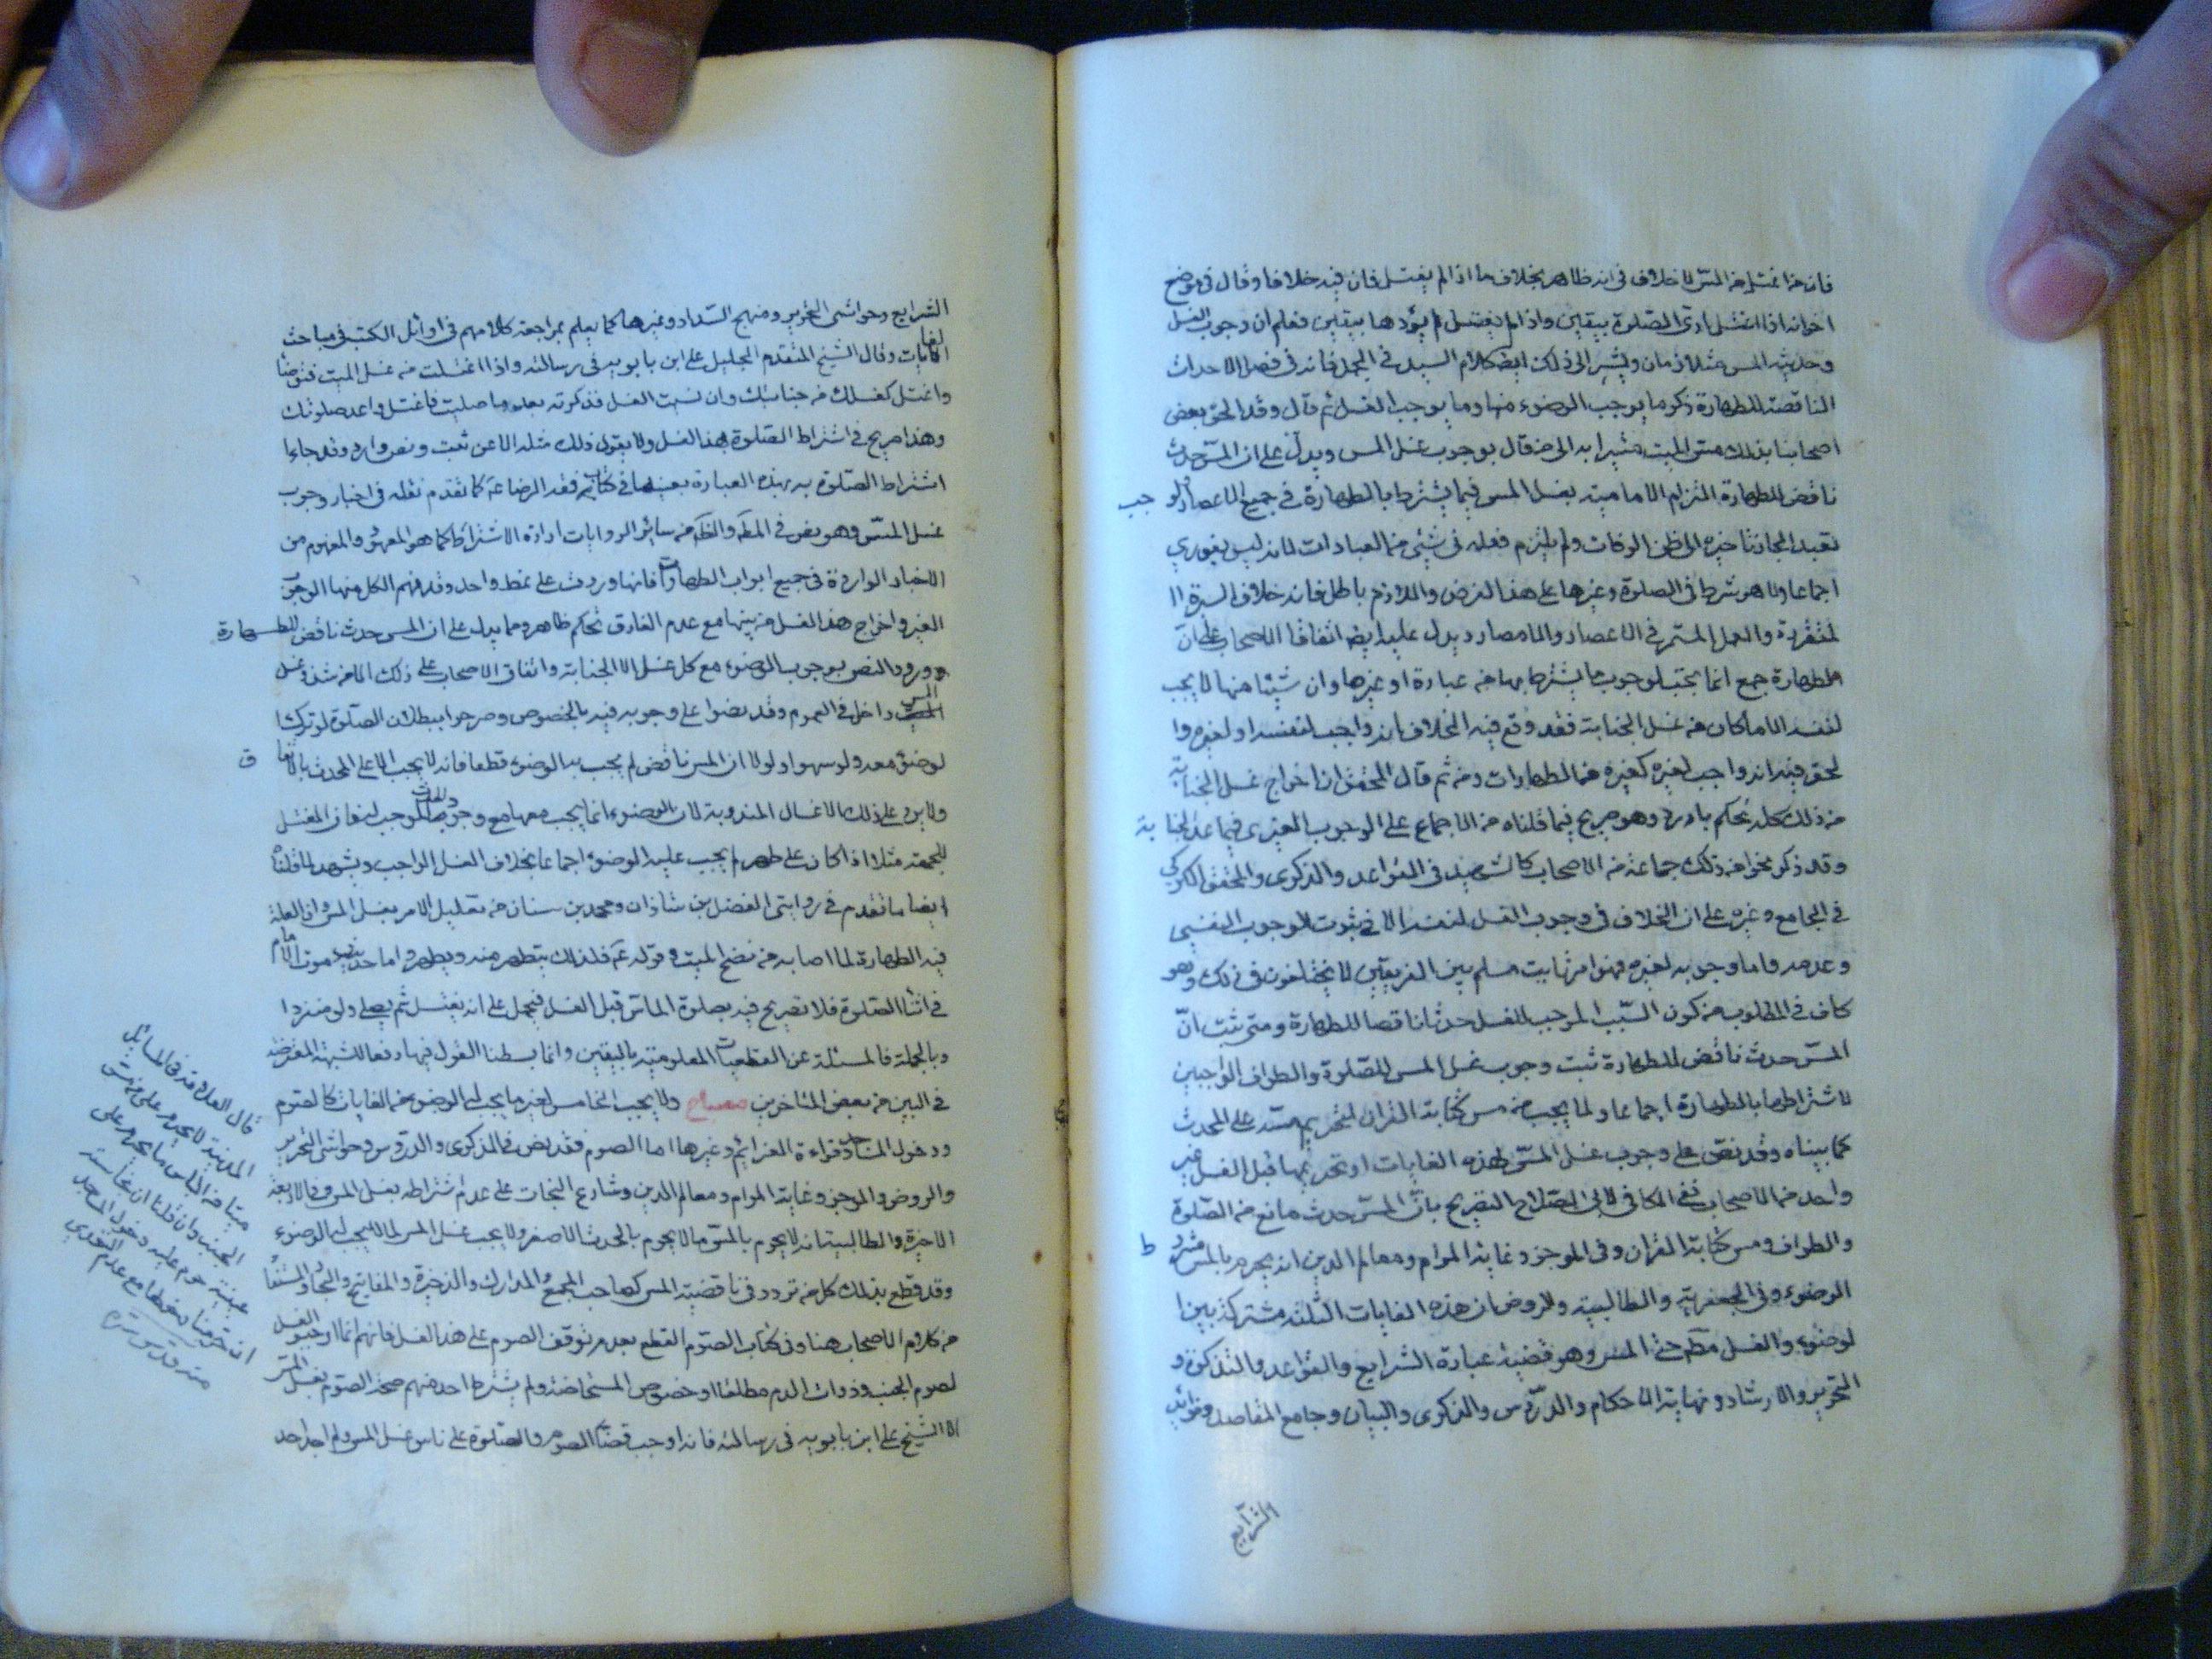 فان من اغتسل من المس لا خلاف في انه طاهر بخلاف ما اذا لم يغتسل فان فيه خلافا وقال في موضع
اخر انه اذا اغتسل ادى الصلوة بيقين واذا لم يغتسل لم يؤدها بيقين فعلم ان وجوب الغسل
وحدثية المس متلازمان ويشير الى ذلك ايض كلام السيد في الجمل فانه في فصل الاحداث
الناقصة للطهارة ذكر ما يوجب الوضوء منها وما يوجب الغسل ثم قال وقد الحق بعض
اصحابنا بذلك مس الميت مشيرا به الى من قال بوجوب غسل المس ويدل على ان المس حدث
ناقض للطهارة التزام الامامية بغسل المس فيما يشترط بالطهارة في جميع الاعصار ولو جب
تعبدا لجاز تاخيره الى ظن الوفات ولم يلتزم فعله في شئ من العبادات لانه ليس بفوري
اجماعا ولا هو شرط في الصلوة وغيرها على هذا الفرض واللازم باطل فانه خلاف السيرة ا
لمتقررة والعمل المستمر في الاعصار والامصار ويدل عليه ايض اتفاق الاصحاب على ان
الطهارة جمع انما يجب لوجوب ما يشترط بها من عبادة او غيرها وان شيئا منها لا يجب
لنفسه الا ما كان من غسل الجنابة فقد وقع فيه الخلاف بانه واجب لنفسه او لغيره وا
لحق فيه انه واجب لغيره كغيره من الطهارات ومن ثم قال المحقق ان اخراج غسل الجنابة
من ذلك كله تحكم بارد وهو صريح فيما قلناه من الاجماع على الوجوب الغيري فيما عدا الجنا بة
وقد ذكر نحوا من ذلك جماعة من الاصحاب كالشهيد في القواعد والذكرى والمحقق الكركي
في الجامع وغيره على ان الخلاف في وجوب الغسل لنفسه الا في ثبوت الوجوب النفسي
وعدمه واما وجوبه لغيره فهو امر ثابت مسلم بين الفريقين لا يختلفون في ذلك وهو
كاف في المطلوب من كون السبب الموجب للغسل حدثا ناقصا للطهارة ومتى ثبت ان
المس حدث ناقض للطهارة ثبت وجوب غسل المس للصلوة والطواف الواجبين
لاشتراطهما بالطهارة اجماعا ولما يجب من مس كتابة القران لتحريم مسه على المحدث
كما بيناه وقد نص على وجوب غسل المس لهذه الغايات او تحريمها قبل الغسل غير
واحد من الاصحاب ففي الكافي لابي الصلاح التصريح بان المس حدث مانع من الصلوة
والطواف ومس كتابة القران وفي الموجز وغاية المرام ومعالم الدين انه يحرم بالمس مشرو ط
الوضوء وفي الجعفرية والطالبية والروض ان هذه الغايات الثلثة مشتركة بين ا
لوضوء والغسل مطم حتى المس وهو قضية عبارة الشرايع والقواعد والتذكرة و
التحرير والارشاد ونهاية الاحكام والدروس والذكرى والبيان وجامع المقاصد وفوائد
الشرايع
الشرايع وحواشي التحرير ومنهج السداد وغيرها كما يعلم بمراجعة كلامهم في اوائل الكتب في مباحث
الغايات وقال الشيخ المتقدم الجليل علي ابن بابويه في رسالته واذا اغتسلت من غسل الميت فتوضا
واغتسل كغسلك من جنابتك وان نسيت الغسل فذكرته بعد ما صليت فاغتسل واعد صلوتك
وهذا صريح في اشتراط الصلوة بهذا الغسل ولا يقول ذلك مثله الا عن تثبت ونص وارد وقد جاء ا
اشتراط الصلوة به بهذه العبارة بعينها في كتاب فقه الرضا عه كما تقدم نقله في اخبار وجوب
غسل المس وهو نص في المط والظ من سائر الروايات ارادة الاشتراط كما هو المعهود والمفهوم من
الاخبار الواردة في جميع ابواب الطهارات فانها وردت على نمط واحد وقد فهم الكل منها الوجوب
الغيري واخراج هذا الغسل من بينها مع عدم الفارق تحكم ظاهر ومما يدل على ان المس حدث ناقض للطهارة
ورود النص بوجوب الوضوء مع كل غسل الا الجنابة واتفاق الاصحاب على ذلك الا من شذ وغسل
المس داخل في العموم وقد نصوا على وجوبه فيه بالخصوص وصرحوا ببطلان الصلوة لو تركت ا
لوضوء معه ولو سهوا ولولا ان المس ناقض لم يجب به الوضوء قطعا فانه لا يجب الا على المحدث بالاتفا ق
ولا يرد على ذلك الاغسال المندوبة لان الوضوء انما يجب معها مع وجود الحدث الموجب له فان المغتسل
للجمعة مثلا اذا كان على طهر لم يجب عليه الوضوء اجماعا بخلاف الغسل الواجب ويشهد لما قلناه
ايضا ما تقدم في روايتي الفضل بن شاذان ومحمد بن سنان من تعليل الامر بغسل المس وان العلة
فيه الطهارة لما اصابه من نضح الميت وقوله عم فلذلك يتطهر منه ويطهر واما حديث موت الامام
في اثنا الصلوة فلا تصريح فيه بصلوة الماس قبل الغسل فيحمل على انه يغتسل ثم يصلي ولو منفردا
وبالجملة فالمسئلة عن القطعيات المعلومة باليقين وانما بسطنا القول فيها دفعا للشبهة المعترضة
في البين من بعض المتاخرين مصباح ولا يجب الخامس لغير ما يجب له الوضوء من الغايات كالصوم
ودخول المساجد وقراءة العزائم وغيرها اما الصوم فقد نص في الذكرى والدروس وحواشي التحرير
والروض والموجز وغاية المرام ومعالم الدين وشارع النجات على عدم اشتراطه بغسل المس وفي الاربعة
الاخيرة والطالبية انه لا يحرم بالمس ما لا يحرم بالحدث الاصغر ولا يجب غسل المس لما لا يجب له الوضوء
وقد قطع بذلك كل من تردد في ناقضية المس كصاحب المجمع والمدارك والذخيرة والمفاتيح والبحار والمستفا
من كلام الاصحاب هنا وفي كتاب الصوم القطع بعدم توقف الصوم على هذا الغسل فانهم انما اوجبوا الغسل
لصوم الجنب وذوات الدم مطلقا او خصوص المستحاضة ولم يشترط احد منهم صحة الصوم بغسل المس
الا الشيخ علي ابن بابويه في رسالته فانه اوجب قضاء الصوم والصلوة على ناسي غسل المس ولم اجد احد
قال العلامة في المسائل
المدنية لا يحرم على من مس
ميتا من الناس ما يحرم على
الجنب وان قلنا ان نجاسته
عينية حرم عليه دخول المساجد
ان حرمنا مع عدم التعدي
منه قدس سره